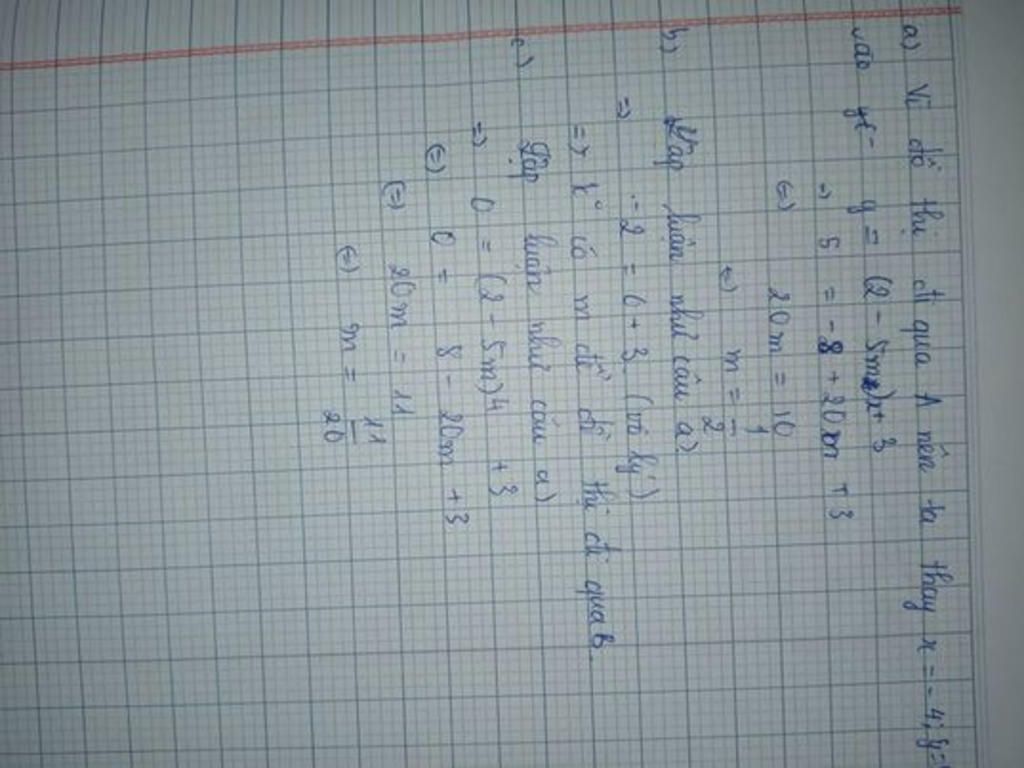 a) Vì đồ thị đi qua A nên ta thay x = -4; y=
vào pt y = (2 - 5m)x + 3
=> 5 = -8 + 20m + 3
(=) 20m = 10
(=) m = 1/2
b) Lập luận như câu a)
=> -2 = 0 + 3 (vô lý)
=> k° có m để đồ thị đi qua B.
c) Lập luận như câu a)
=> 0 = (2 - 5m)4 + 3
(=) 0 = 8 - 20m + 3
(=) 20m = 11
(=) m = 11/20